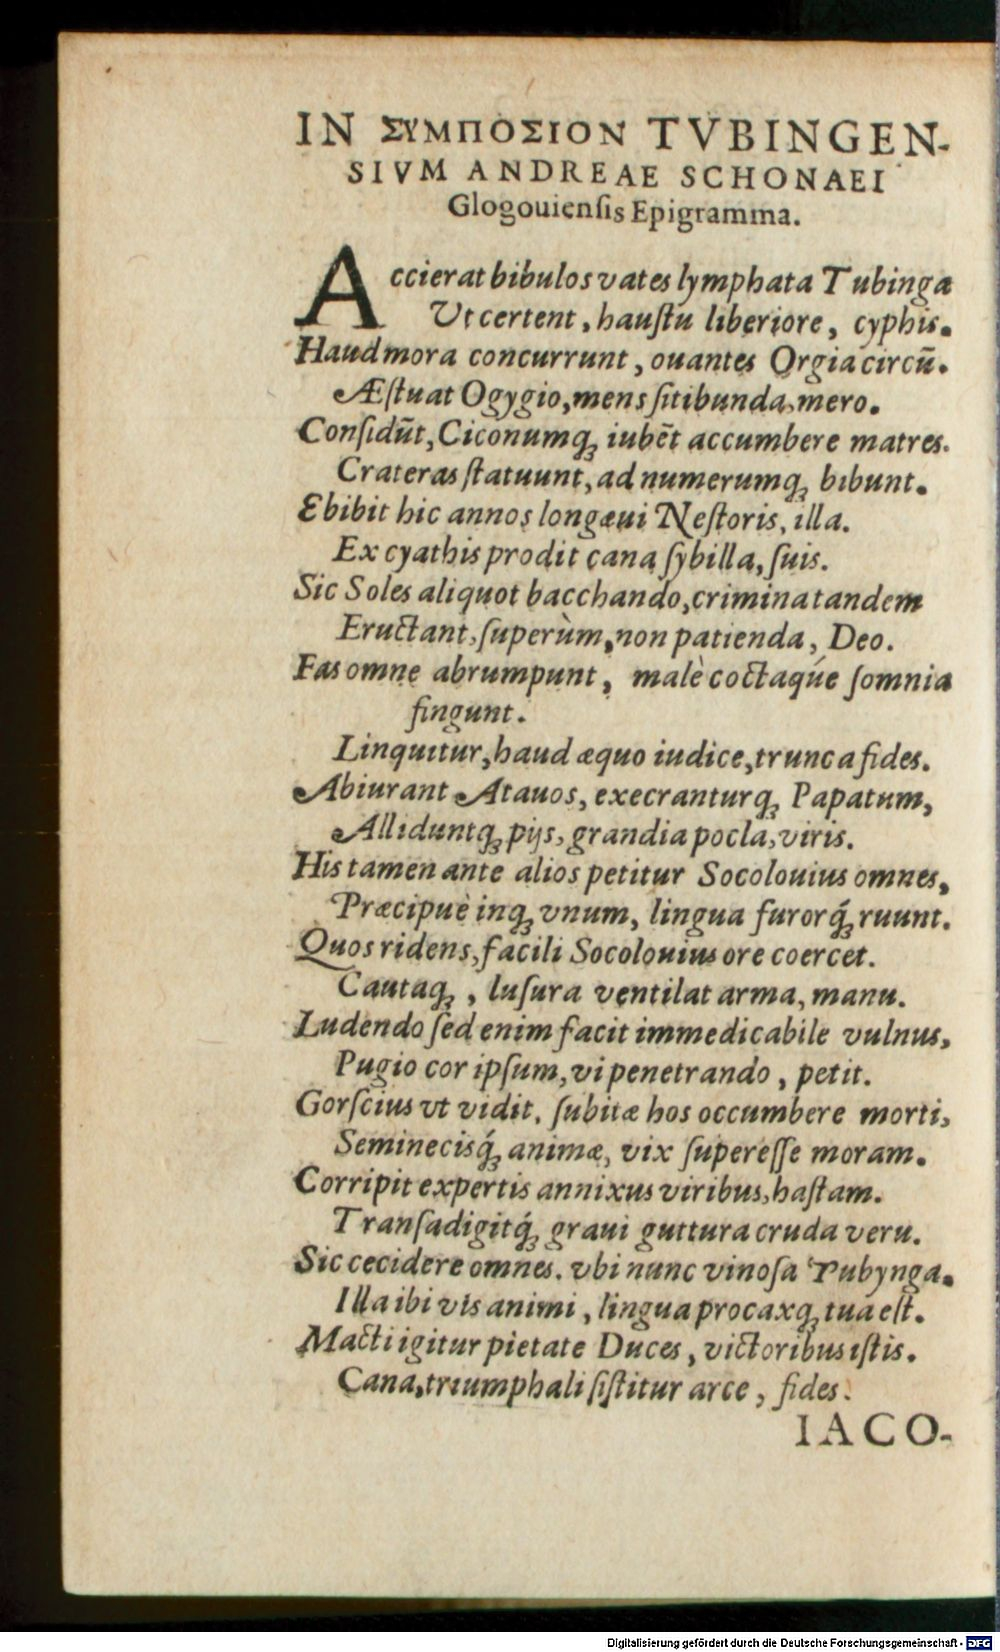 IN ΣΥΜΠΟΣΙΟΝ TVBINGEN-
SIVM ANDREAE SCHONAEI
Glogouienſis Epigramma.
Accierat bibulos vates lymphata Tubinga
Ut certent, hauſtu liberiore, cyphis.
Haud mora concurrunt, ouantes Orgia circū.
Æſtuat Ogygio, mens ſitibunda, mero.
Conſidūt, Ciconumq́ꝫ iubēt accumbere matres.
Crateras ſtatuunt, ad numerumqꝫ bibunt.
Ebibit hic annos longæui Neſtoris, illa.
Ex cyathis prodit cana ſybilla, ſuis.
Sic Soles aliquot bacchando, crimina tandem
Eructant, ſuperùm, non patienda, Deo.
Fas omne abrumpunt, malè coctaqúe ſomnia
fingunt.
Linquitur, haud æquo iudice, trunca fides.
Abiurant Atauos, execranturqꝫ Papatum,
Alliduntqꝫ pijs, grandia pocla, viris.
His tamen ante alios petitur Socolouius omnes,
Præcipuè inqꝫ vnum, lingua furorq́ꝫ ruunt.
Quos ridens, facili Socolouius ore coercet.
Cautaqꝫ, luſura ventilat arma, manu.
Ludendo ſed enim facit immedicabile vulnus,
Pugio cor ipſum, vi penetrando, petit.
Gorſcius vt vidit, ſubitæ hos occumbere morti,
Seminecisq́ꝫ animæ, vix ſupereſſe moram.
Corripit expertis annixus viribus, haſtam.
Tranſadigitq́ꝫ graui guttura cruda veru.
Sic cecidere omnes. vbi nunc vinoſa Tubynga.
Illa ibi vis animi, lingua procaxqꝫ tua eſt.
Macti igitur pietate Duces, victoribus iſtis.
Cana, triumphali ſiſtitur arce, fides.
IACO-
Digitalisierung gefördert durch die Deutsche Forschungsgemeinschaft - DFG